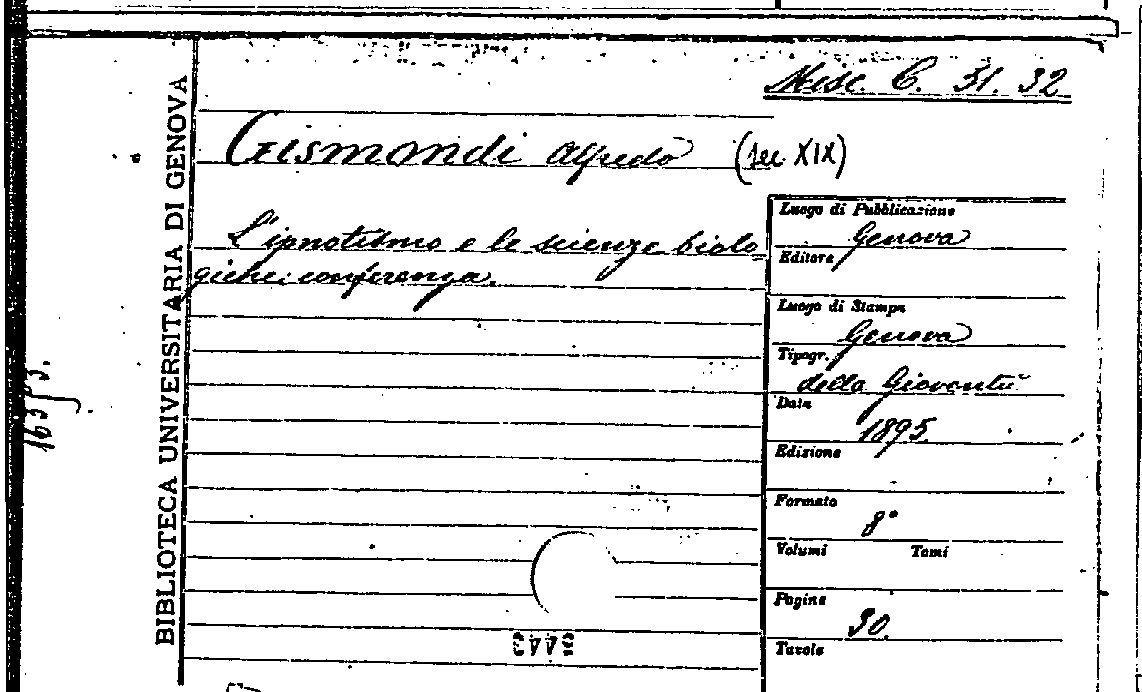 Misc. C. 31. 32
Gismondi Alfredo (sec XIX)
L'ipnotismo e le scienze biolo
giche: conferenza.
BIBLIOTECA UNIVERSITARIA DI GENOVA
Luogo di Pubblicazione
Genova
Editore
Luogo di Stampa
Genova
Tipogr.
della Gioventù
Data
1895
Edizione
Formato
8°
Volumi Tomi
Pagine
30
Tavole